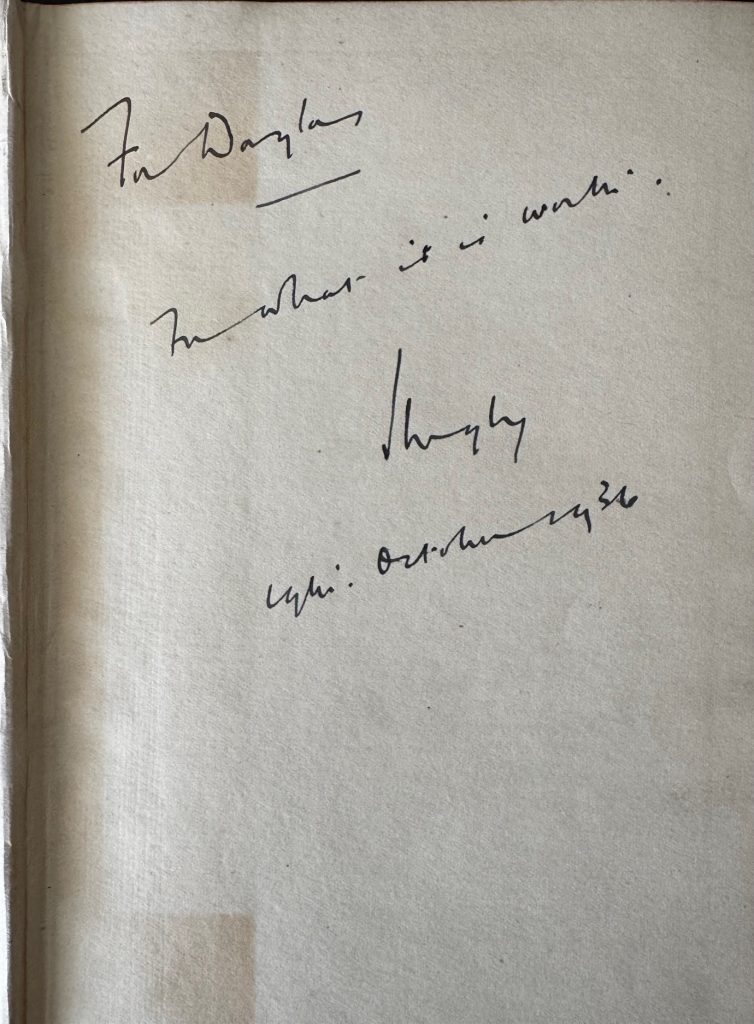 For Douglas
For what it is worth.
October 1936